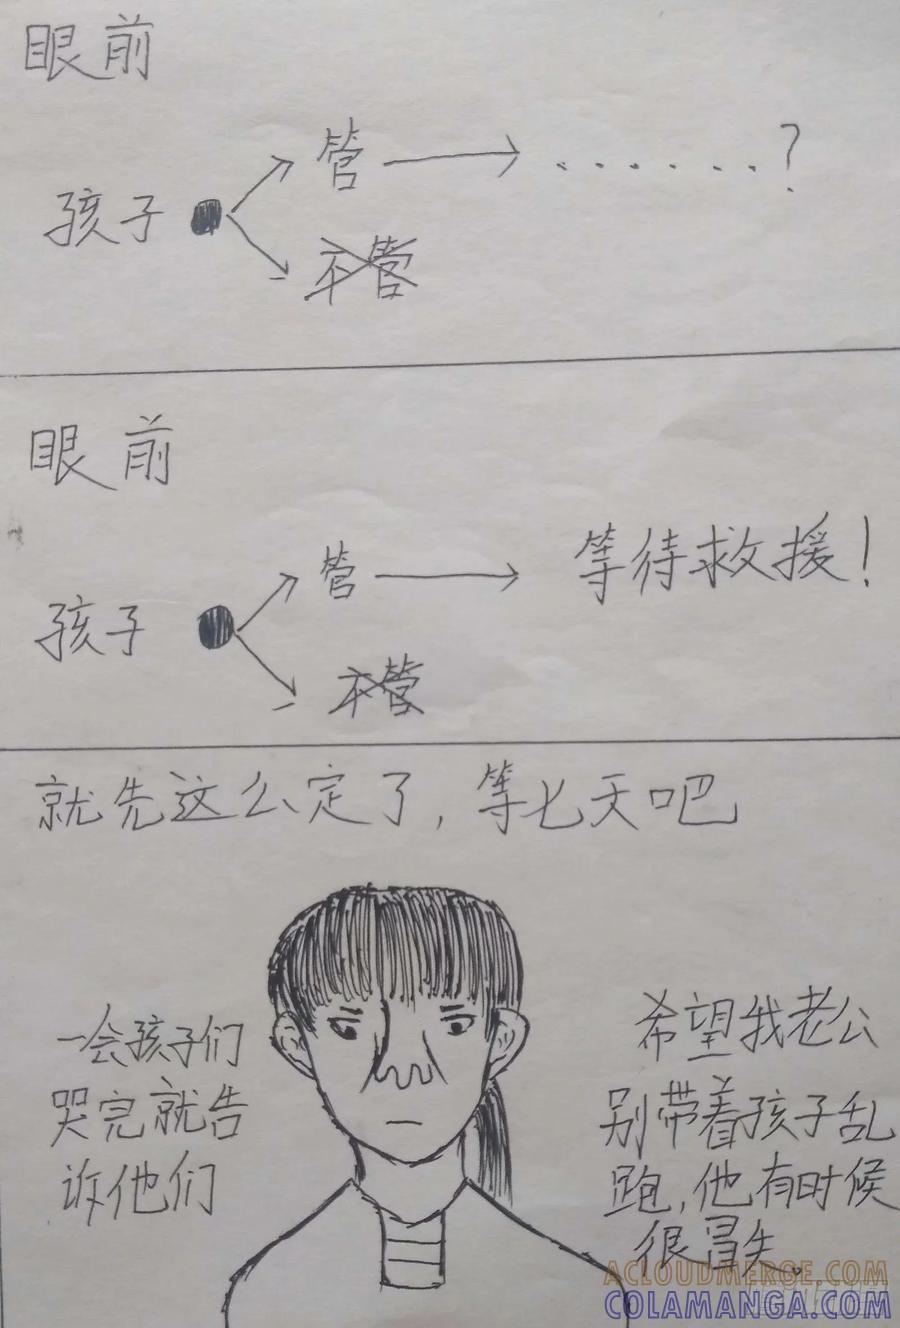 眼前
孩子
管
.......?
不管
眼前
孩子
管
等待救援!
不管
就先这么定了,等七天吧
一会孩子们
哭完就告
诉他们
希望我老公
别带着孩子乱
跑,他有时候
很冒失。
ACLOUDMERGE.COM
COLAMANGA.COM